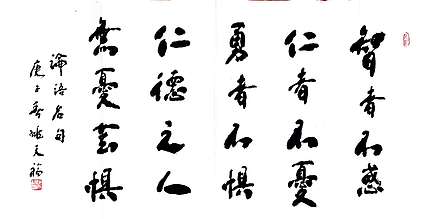 智者不惑
仁者不憂
勇者不惧
仁德之人
無憂無惧
論語名句
庚子春姚天福